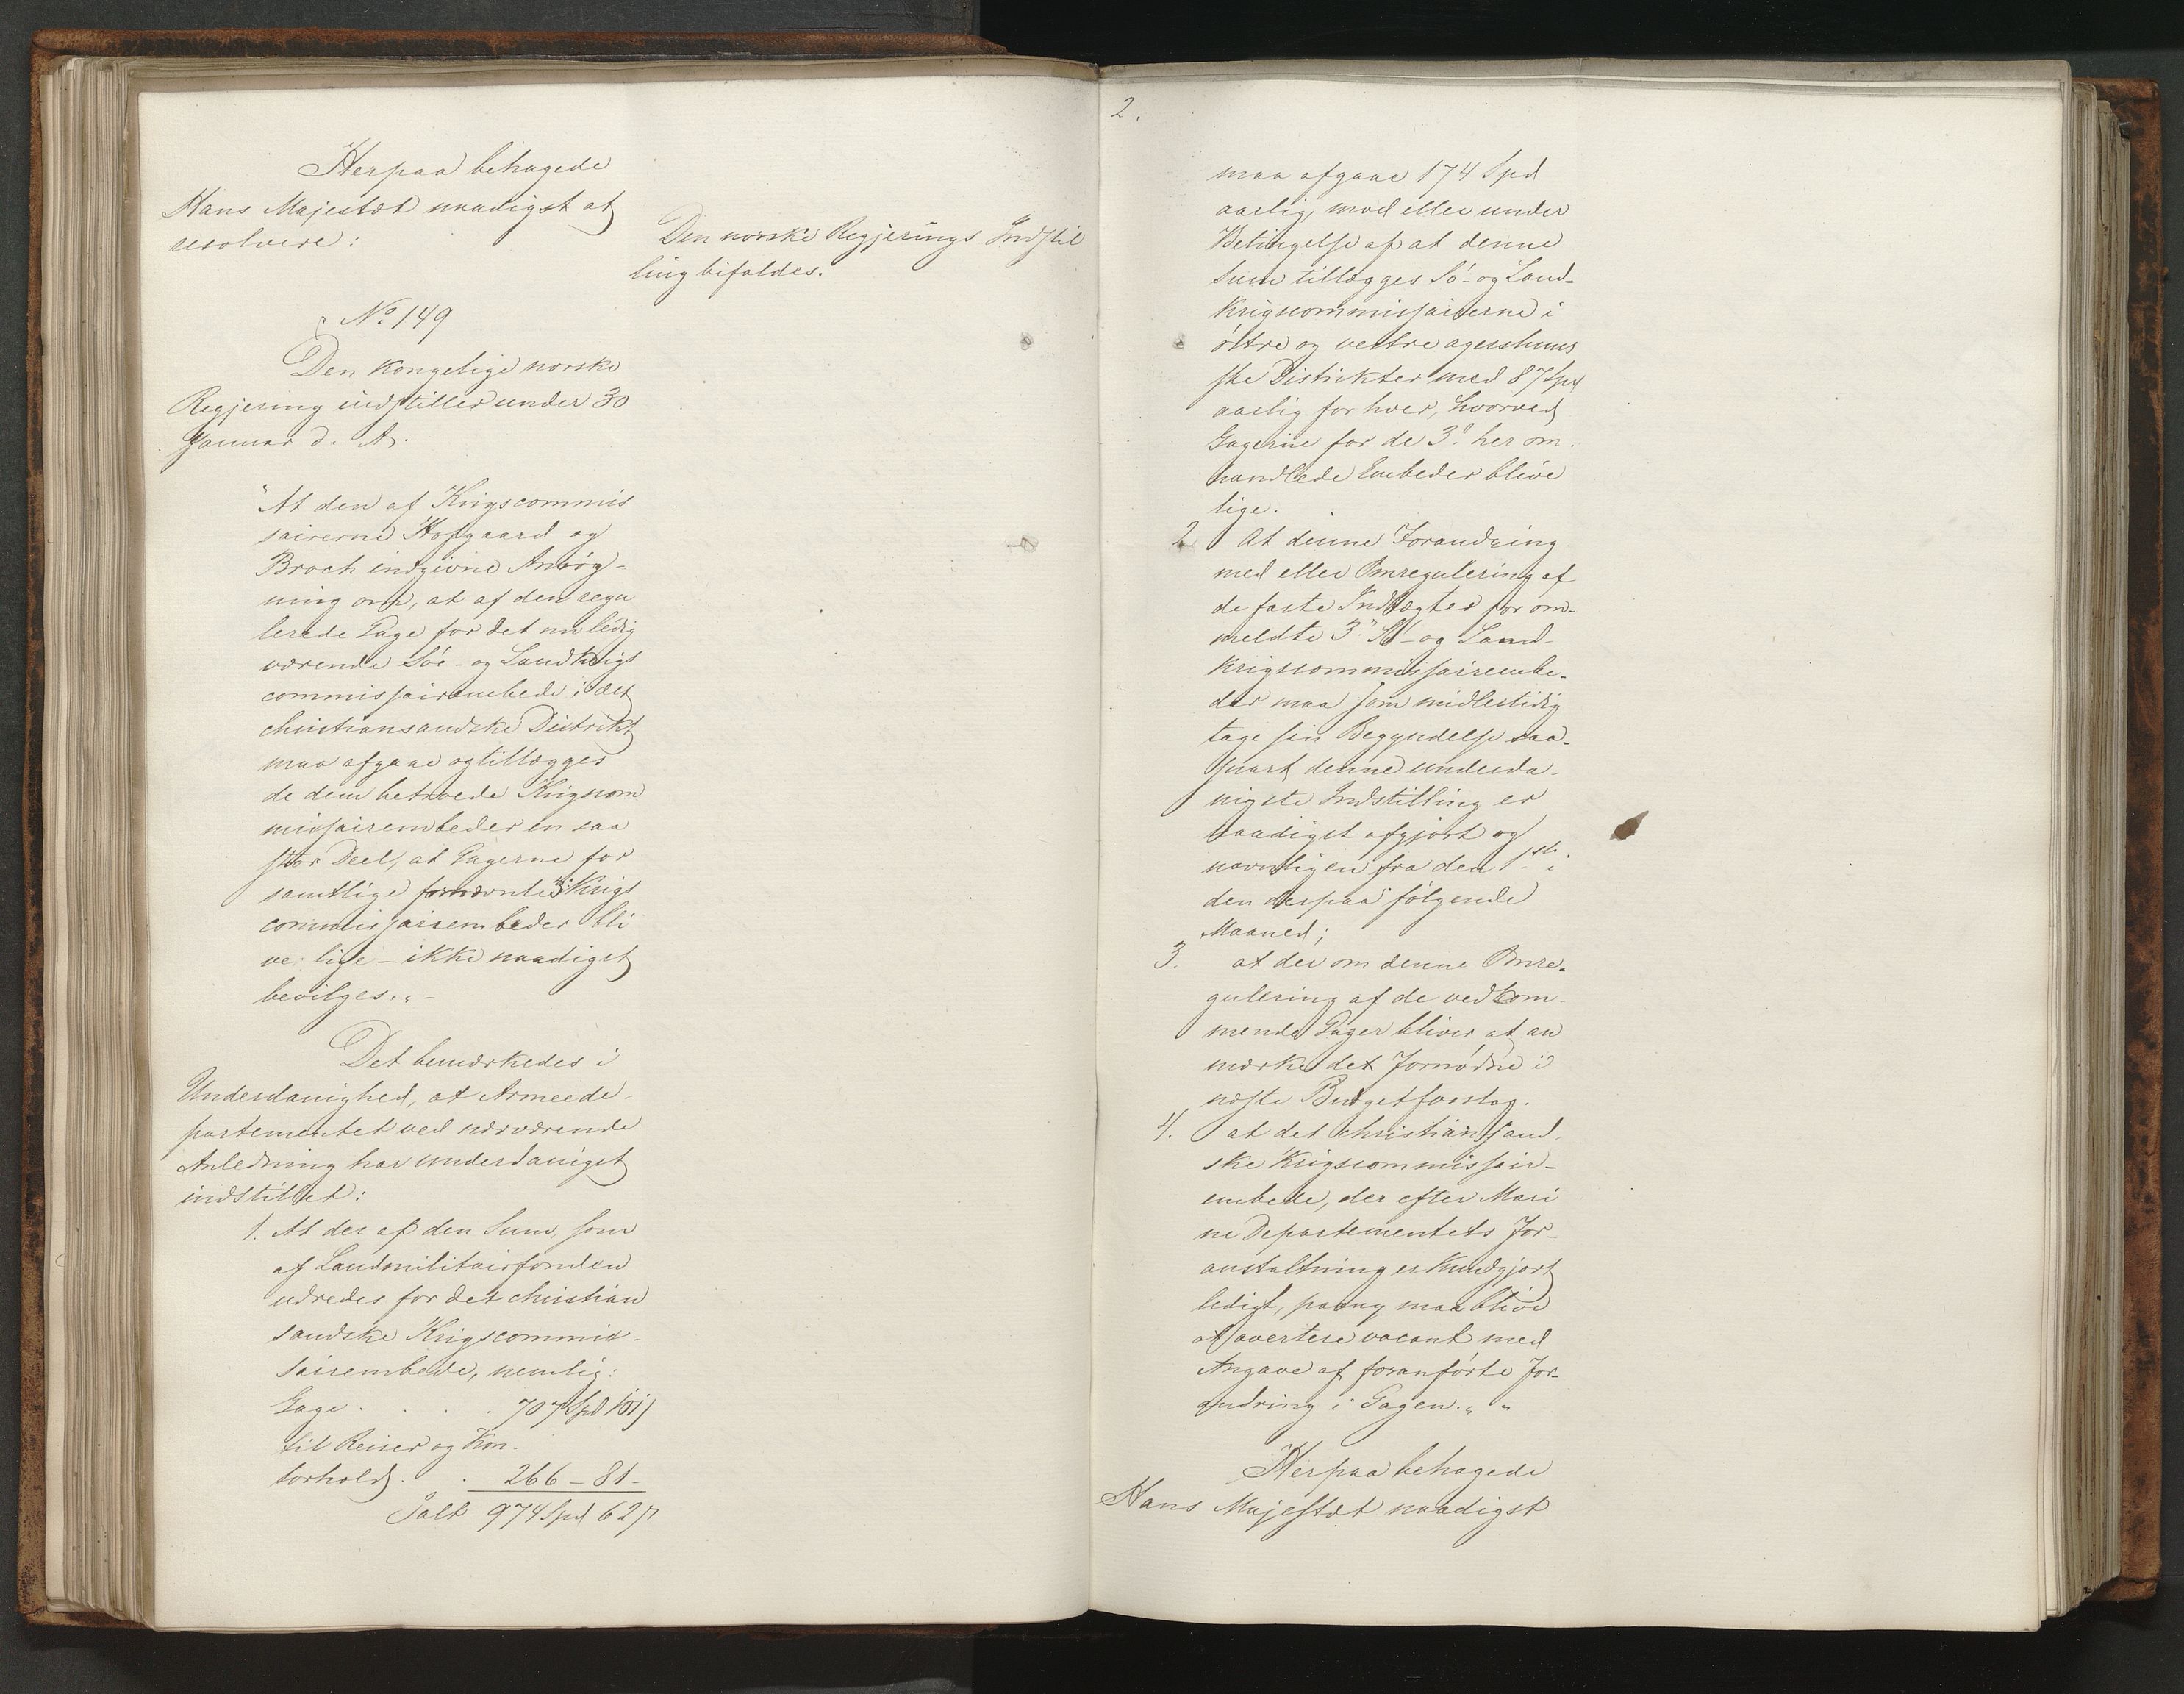 Herpaa behagede
Hans Majestæt naadigst at
resolvere:
Den norske Regjerings Indstil
ling bifaldes.
No 149
Den kongelige norske
Regjering indstiller under 30
Januar d. A.
"At den af Krigscommis
sairerne Hofgaard og
Broch indgivne Ansøg-
ning om, at af den regu
lerede Gage for det nu ledig
værende Søe- og Landkrigs
commissairembede i det
christiansandske Distrikt
maa afgaae og tillægges
de dem betroede Krigscom
missairembeder en saa
stor Deel, at Gagerne for
samtlige fornævnte 3 Krigs
commissairembeder bli
ve lige - ikke naadigst
bevilges." -
Det bemærkedes i
Underdanighed, at Armeede-
partementet ved nærværende
Anledning har underdanigst
indstillet:
1. At der af den Sum, som
af Landmilitairfonden
udredes for det christian
sandske Krigscommis-
sairembede, nemlig:
Gage . . . . 707 Spd
til Reiser og Kon-
torhold . . 266 - 81 -
Ialt 974 Spd 62
2.
maa afgaae 174 Spd
aarlig, mod eller under
Betingelse af at denne
Sum tillægges Sö- og Land-
krigscommissairerne i
östre og vestre agershuus
ske Distrikter med 87 Spd
aarlig for hver, hvorved
Gagerne for de 3de her om-
handlede Embeder blive
lige.
2 At denne Forandring
med eller Omregulering af
de faste Indtægter for om-
meldte 3de Sö- og Land-
krigscommissairembe-
der maa som midlertidig
tage sin Begyndelse saa-
snart denne underda-
nigste Indstilling er
naadigst afgjort og
navnligen fra den 1ste i
den derpaa følgende
Maaned;
3. at der om denne Omre-
gulering af de vedkom-
mende Gager bliver at an
mærke det Fornödne i
næste Budgetforslag.
4. at det christiansand-
ske Krigscommissair-
embede, der efter Mari
ne Departementets For-
anstaltning er kundgjort
ledigt, paany maa blive
at avertere vacant med
Angave af foranførte For-
andring i Gagen." "
Herpaa behagede
Hans Majestæt naadigst